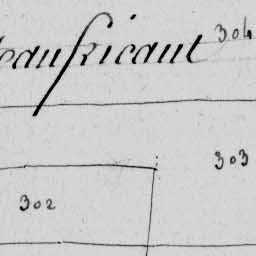 eaufricaut 304
303
302